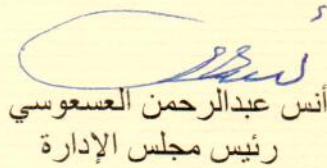 أنس عبدالرحمن العسعوسي
رئيس مجلس الإدارة